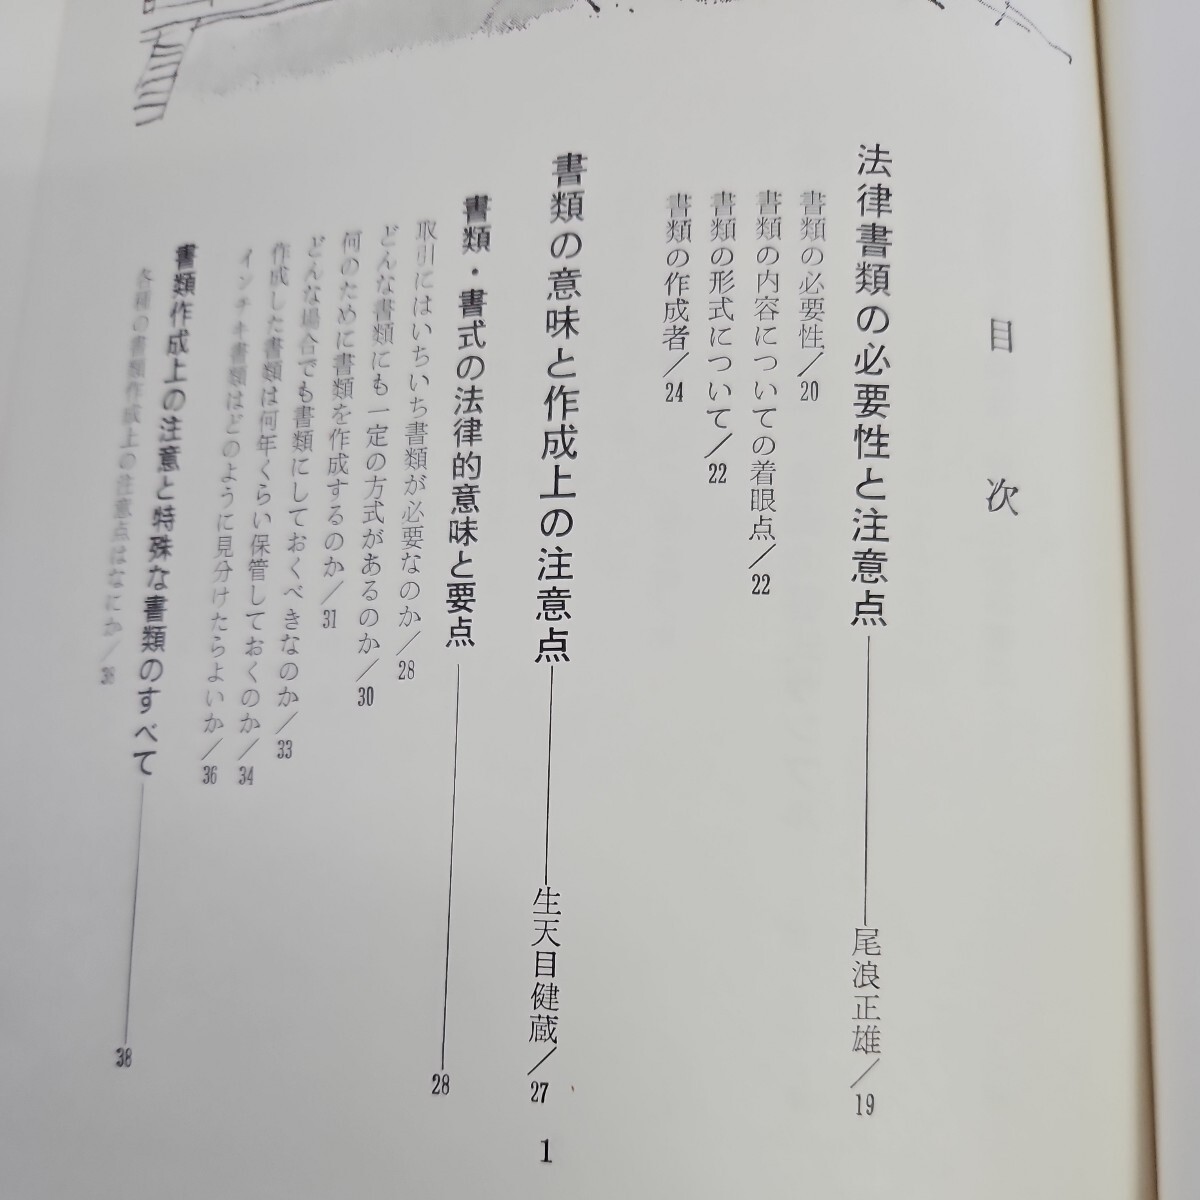 目次
法律書類の必要性と注意点――尾浪正雄/19
書類の必要性/20
書類の内容についての着眼点/22
書類の形式について/22
書類の作成者/24
書類の意味と作成上の注意点――生天目健蔵/27
書類・書式の法律的意味と要点――28
取引にはいちいち書類が必要なのか/28
どんな書類にも一定の方式があるのか/30
何のために書類を作成するのか/31
どんな場合でも書類にしておくべきなのか/33
作成した書類は何年くらい保管しておくのか/34
インチキ書類はどのように見分けたらよいか/36
書類作成上の注意と特殊な書類のすべて――38
各種の書類作成上の注意点はなにか/38
1